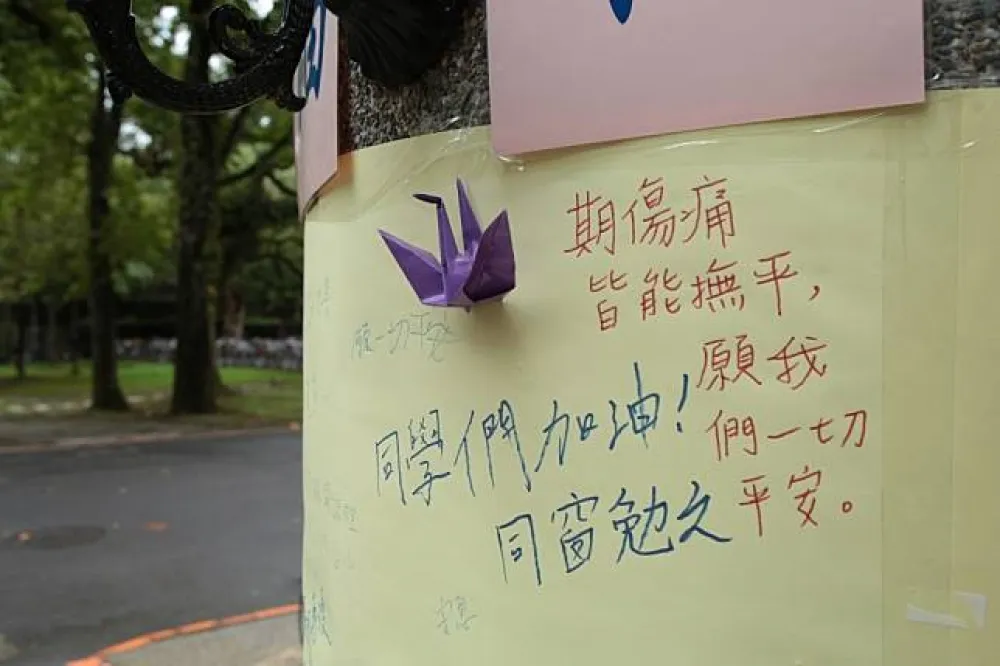 期傷痛
皆能撫平,
願我
們一切
平安。
願一切平安
同學們加油!
同窗勉之